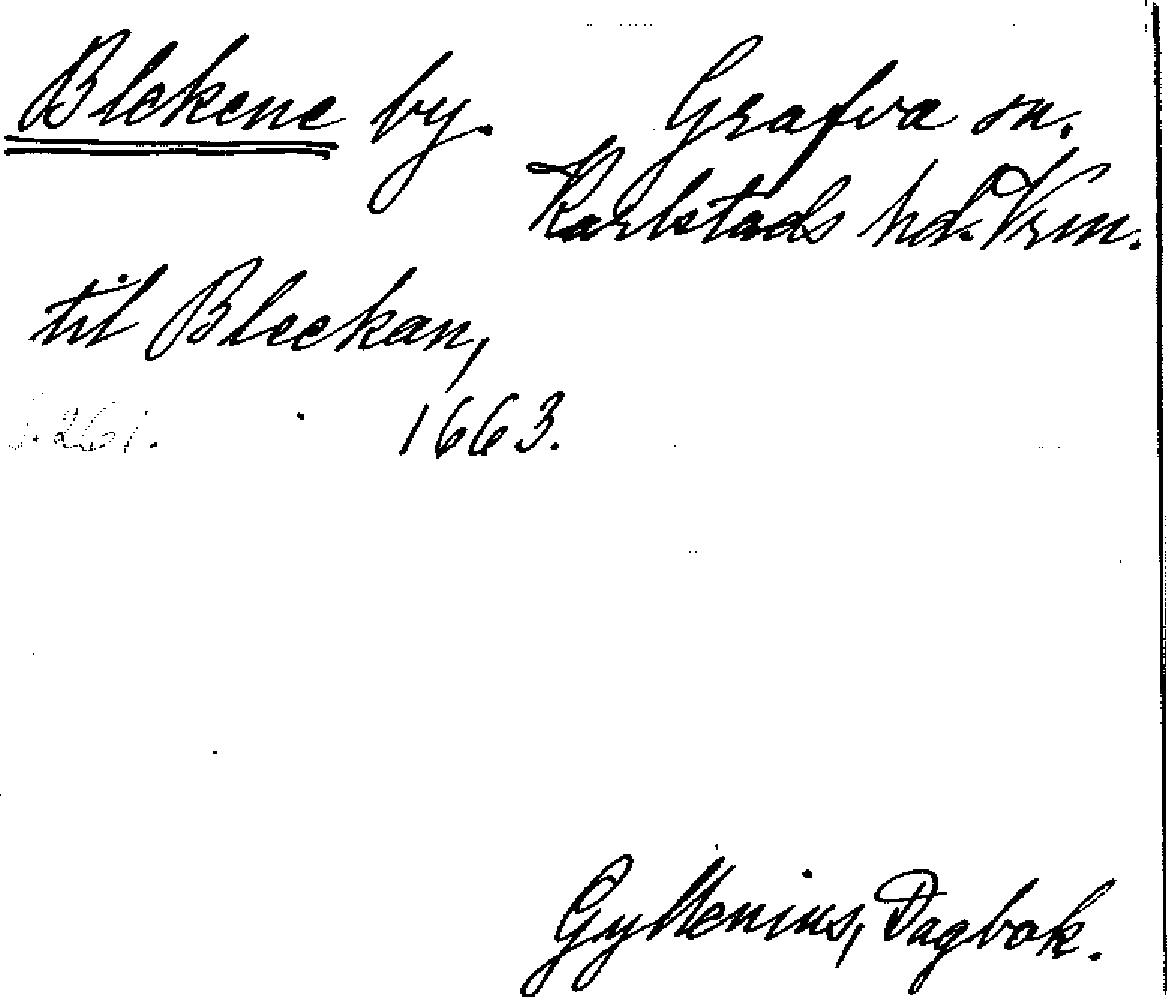 Blekene by. Grafva sn.
Karlstads hd. Vrm.
til Bleekan,
S. 261. 1663.
Gyllenius, Dagbok.